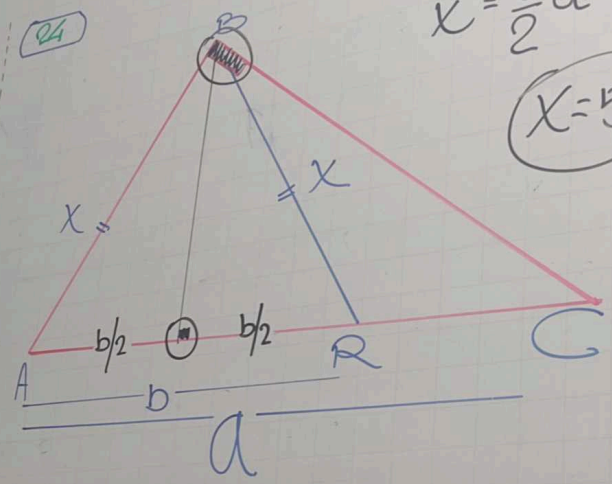 24
B
x = 
2
x = 5
x
x
b/2
b/2
A
R
C
b
a